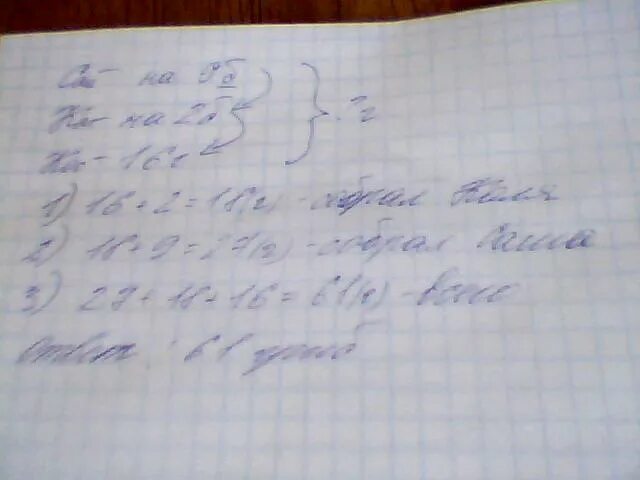 Са- на 9б
Ко- на 2б ?г
Ки- 16г
1) 16+2=18(г) - собрал Коля
2) 18+9=27(г) - собрал Саша
3) 27+18+16=61(г) - всего
Ответ: 61 гриб